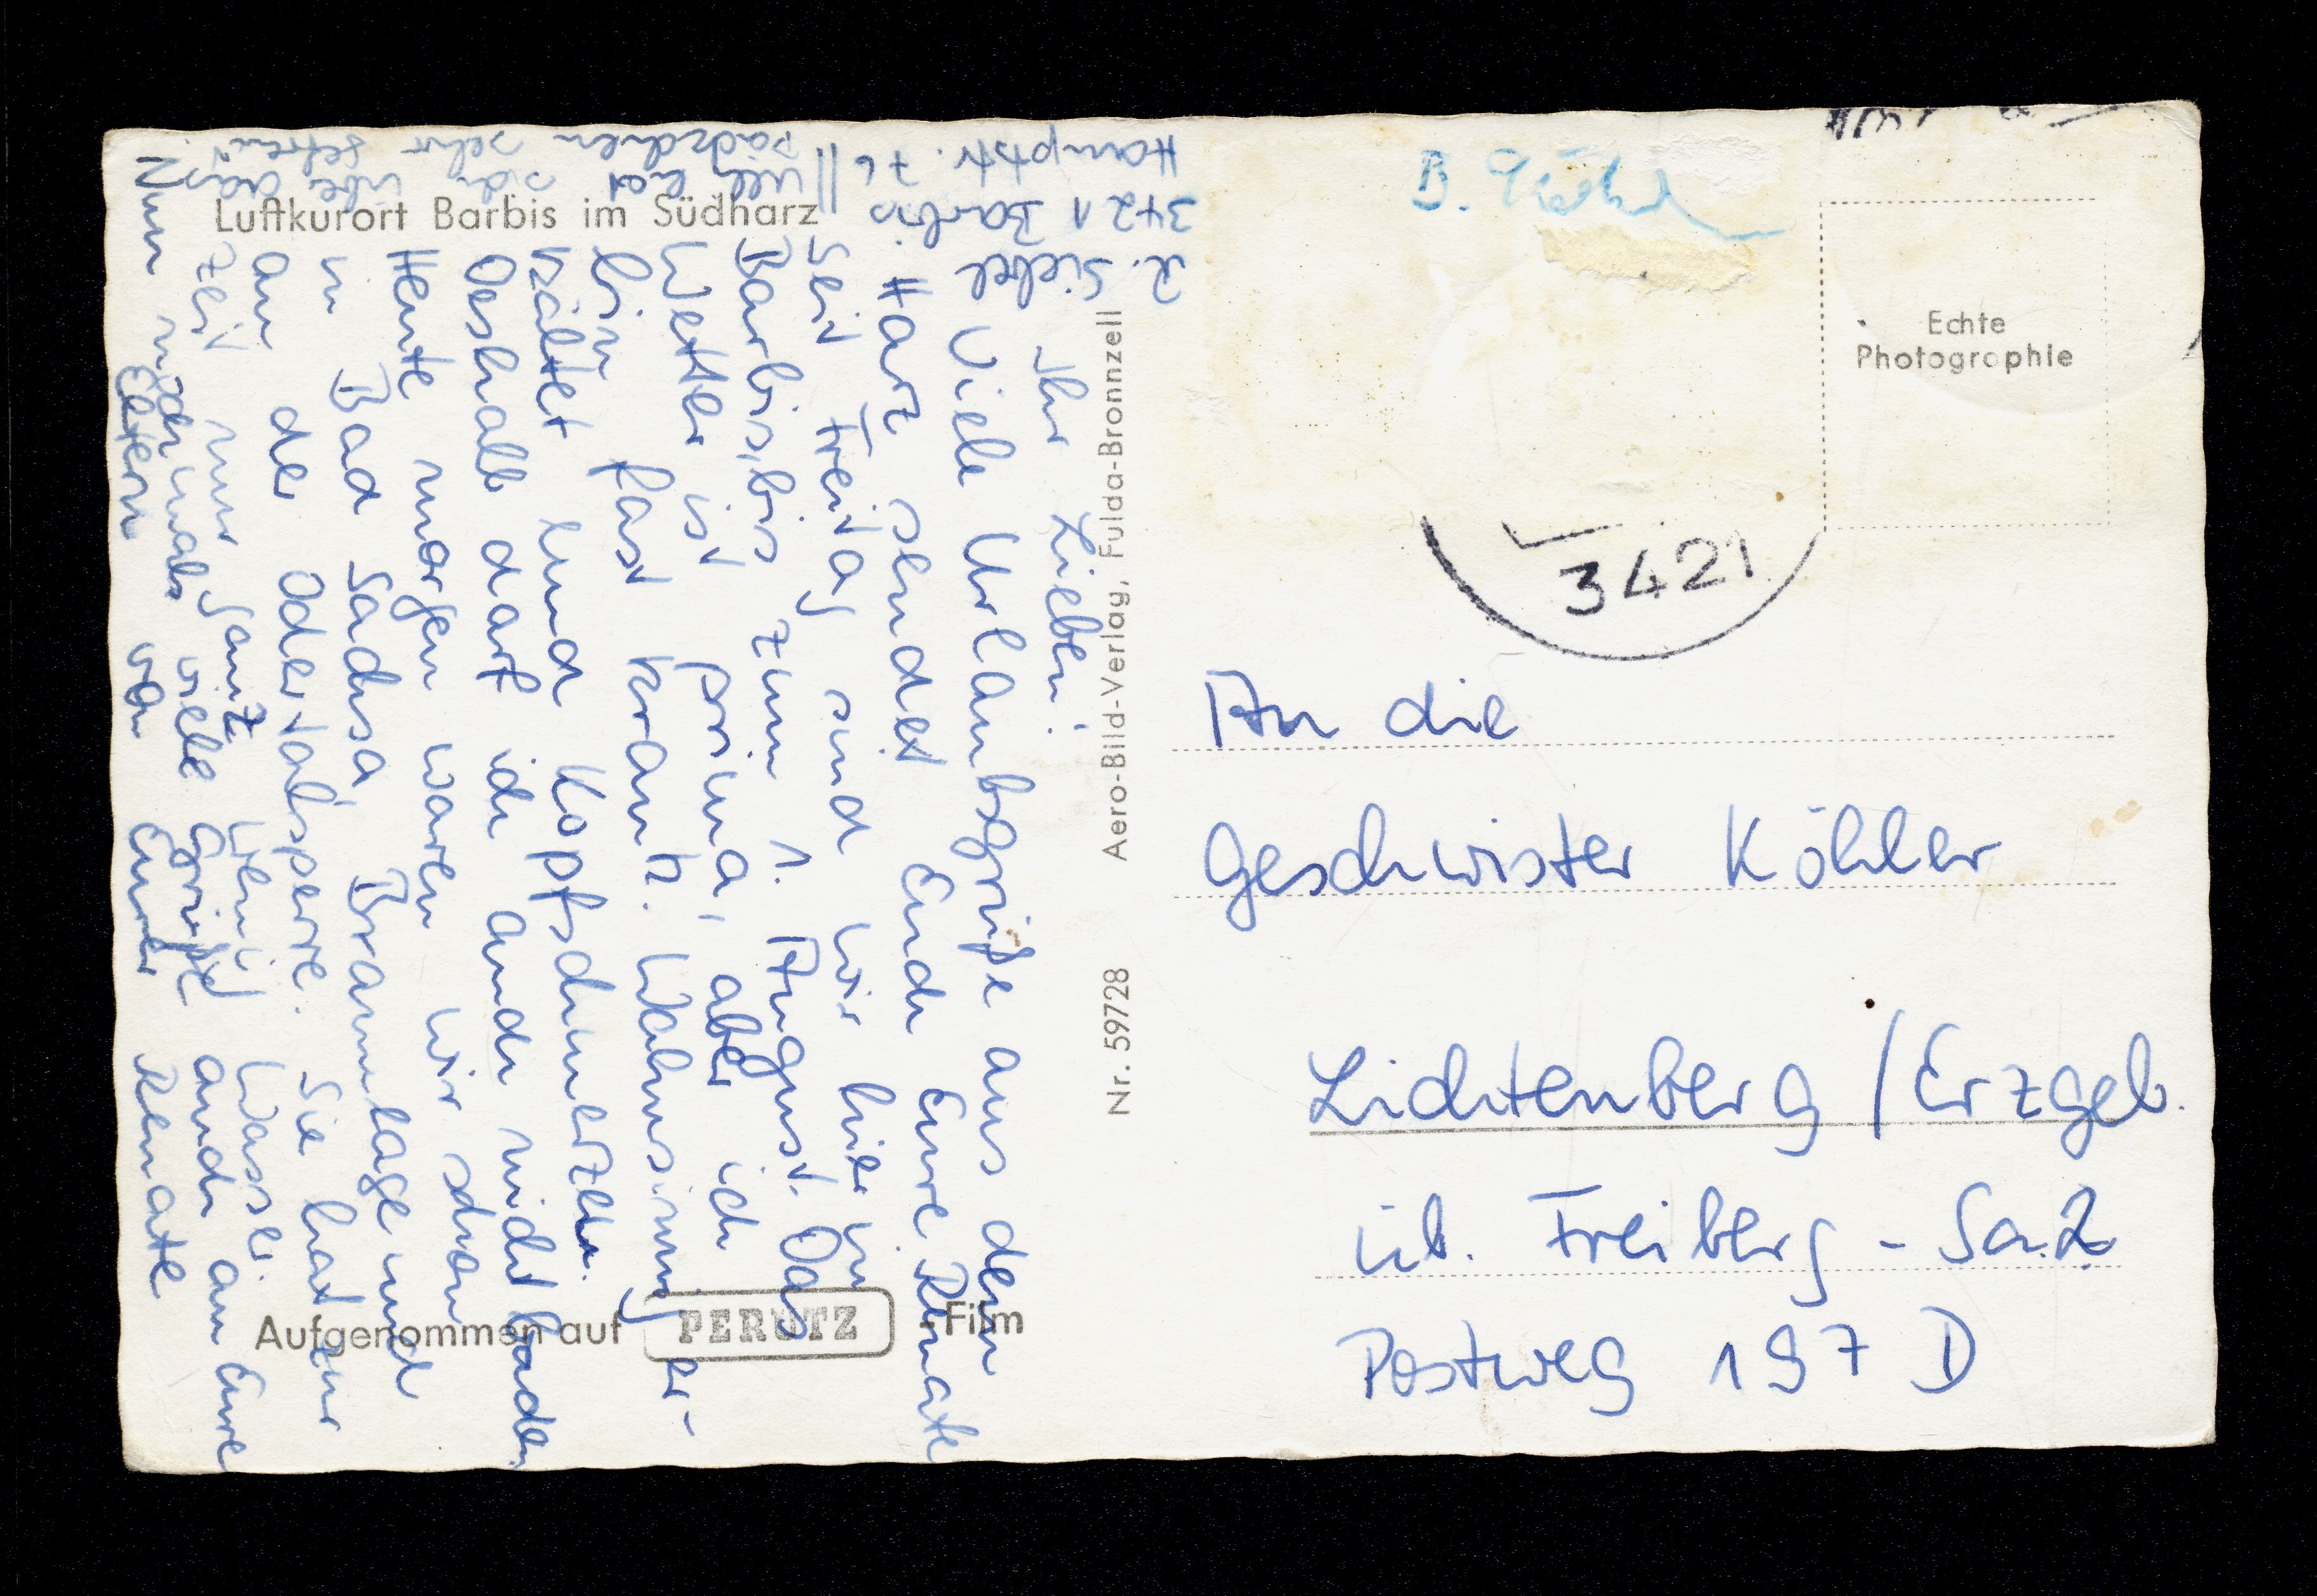 Luftkurort Barbis im Südharz
R. Siebel
3421 Barbis
Hauptstr. 76
Ihr Lieben!
Viele Urlaubsgrüße aus dem
Harz sendet Euch Eure Renate
Seit Freitag sind wir hier in
Barbis, bis zum 1. August. Das
Wetter ist prima, aber ich
bin fast krank. Wahnsinnig er-
kältet und Kopfschmerzen.
Deshalb darf ich auch nicht baden
Heute morgen waren wir schon
in Bad Sachsa, Braunlage und
an der Odertalsperre. Sie hat zur
Zeit nur ganz wenig Wasser.
Nun nochmals viele Grüße auch an Eure
Eltern von Eurer Renate
hat sich über das
Päckchen sehr gefreut.
Aufgenommen auf PERUTZ -Film
Aero-Bild-Verlag, Fulda-Bronnzell
Nr. 59728
B.
Echte
Photographie
3421
An die
Geschwister Köhler
Lichtenberg / Erzgeb.
üb. Freiberg - Sa. 2
Postweg 197 D